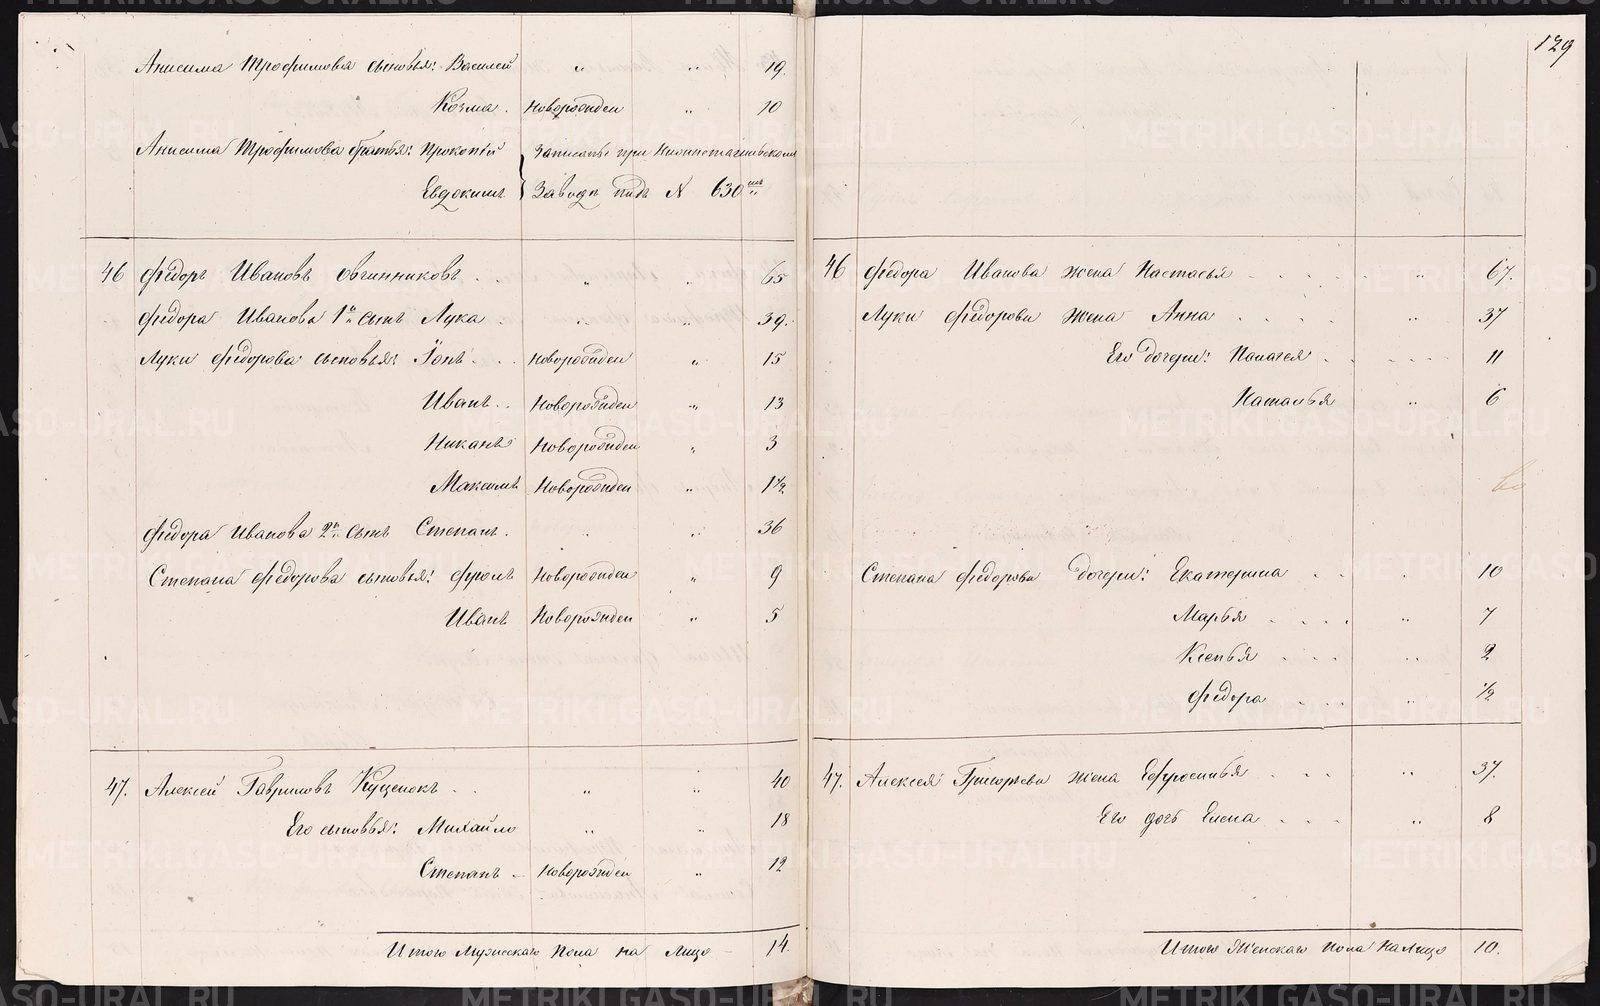 129
Анисима Трофимова сыновья: Василей " " 19.
Козма. Новорожден " 10
Анисима Трофимова братья: Прокопей Записаны при Нижнетагильскомъ
Евдокимъ Заводе подъ № 630мъ
46 Федоръ Ивановъ Овчинниковъ . . " " 65
Федора Иванова 1й сынъ Лука . " " 39.
Луки Федорова сыновья: Іонъ . . Новорожден " 15
Иванъ . . Новорожден " 13
Никанъ Новорожден " 3
Максимъ Новорожден " 1 1/2
Федора Иванова 2й сынъ Степанъ . " " 36
Степана Федорова сыновья: Фролъ Новорожден " 9
Иванъ Новорожден " 5
47. Алексей Гавриловъ Куценокъ . . " " 40
Его сыновья: Михайло " " 18
Степанъ Новорожден " 12
Итого Мужескаго Пола на Лицо 14.
46 Федора Иванова жена Настасья . . . . " 67.
Луки Федорова жена Анна . . . . " 37
Его дочери: Палагея . . . . 11
Наталья " 6
Степана Федорова дочери: Екатерина . . . 10
Марья . . . . " 7
Ксенья . . . " 2
Федора . . " 1/2
47. Алексея Григорьева жена Ефросинья . . . " 37.
Его дочь Елена . . . " 8
Итого Женскаго пола На Лицо 10.
METRIKI.GASO-URAL.RU